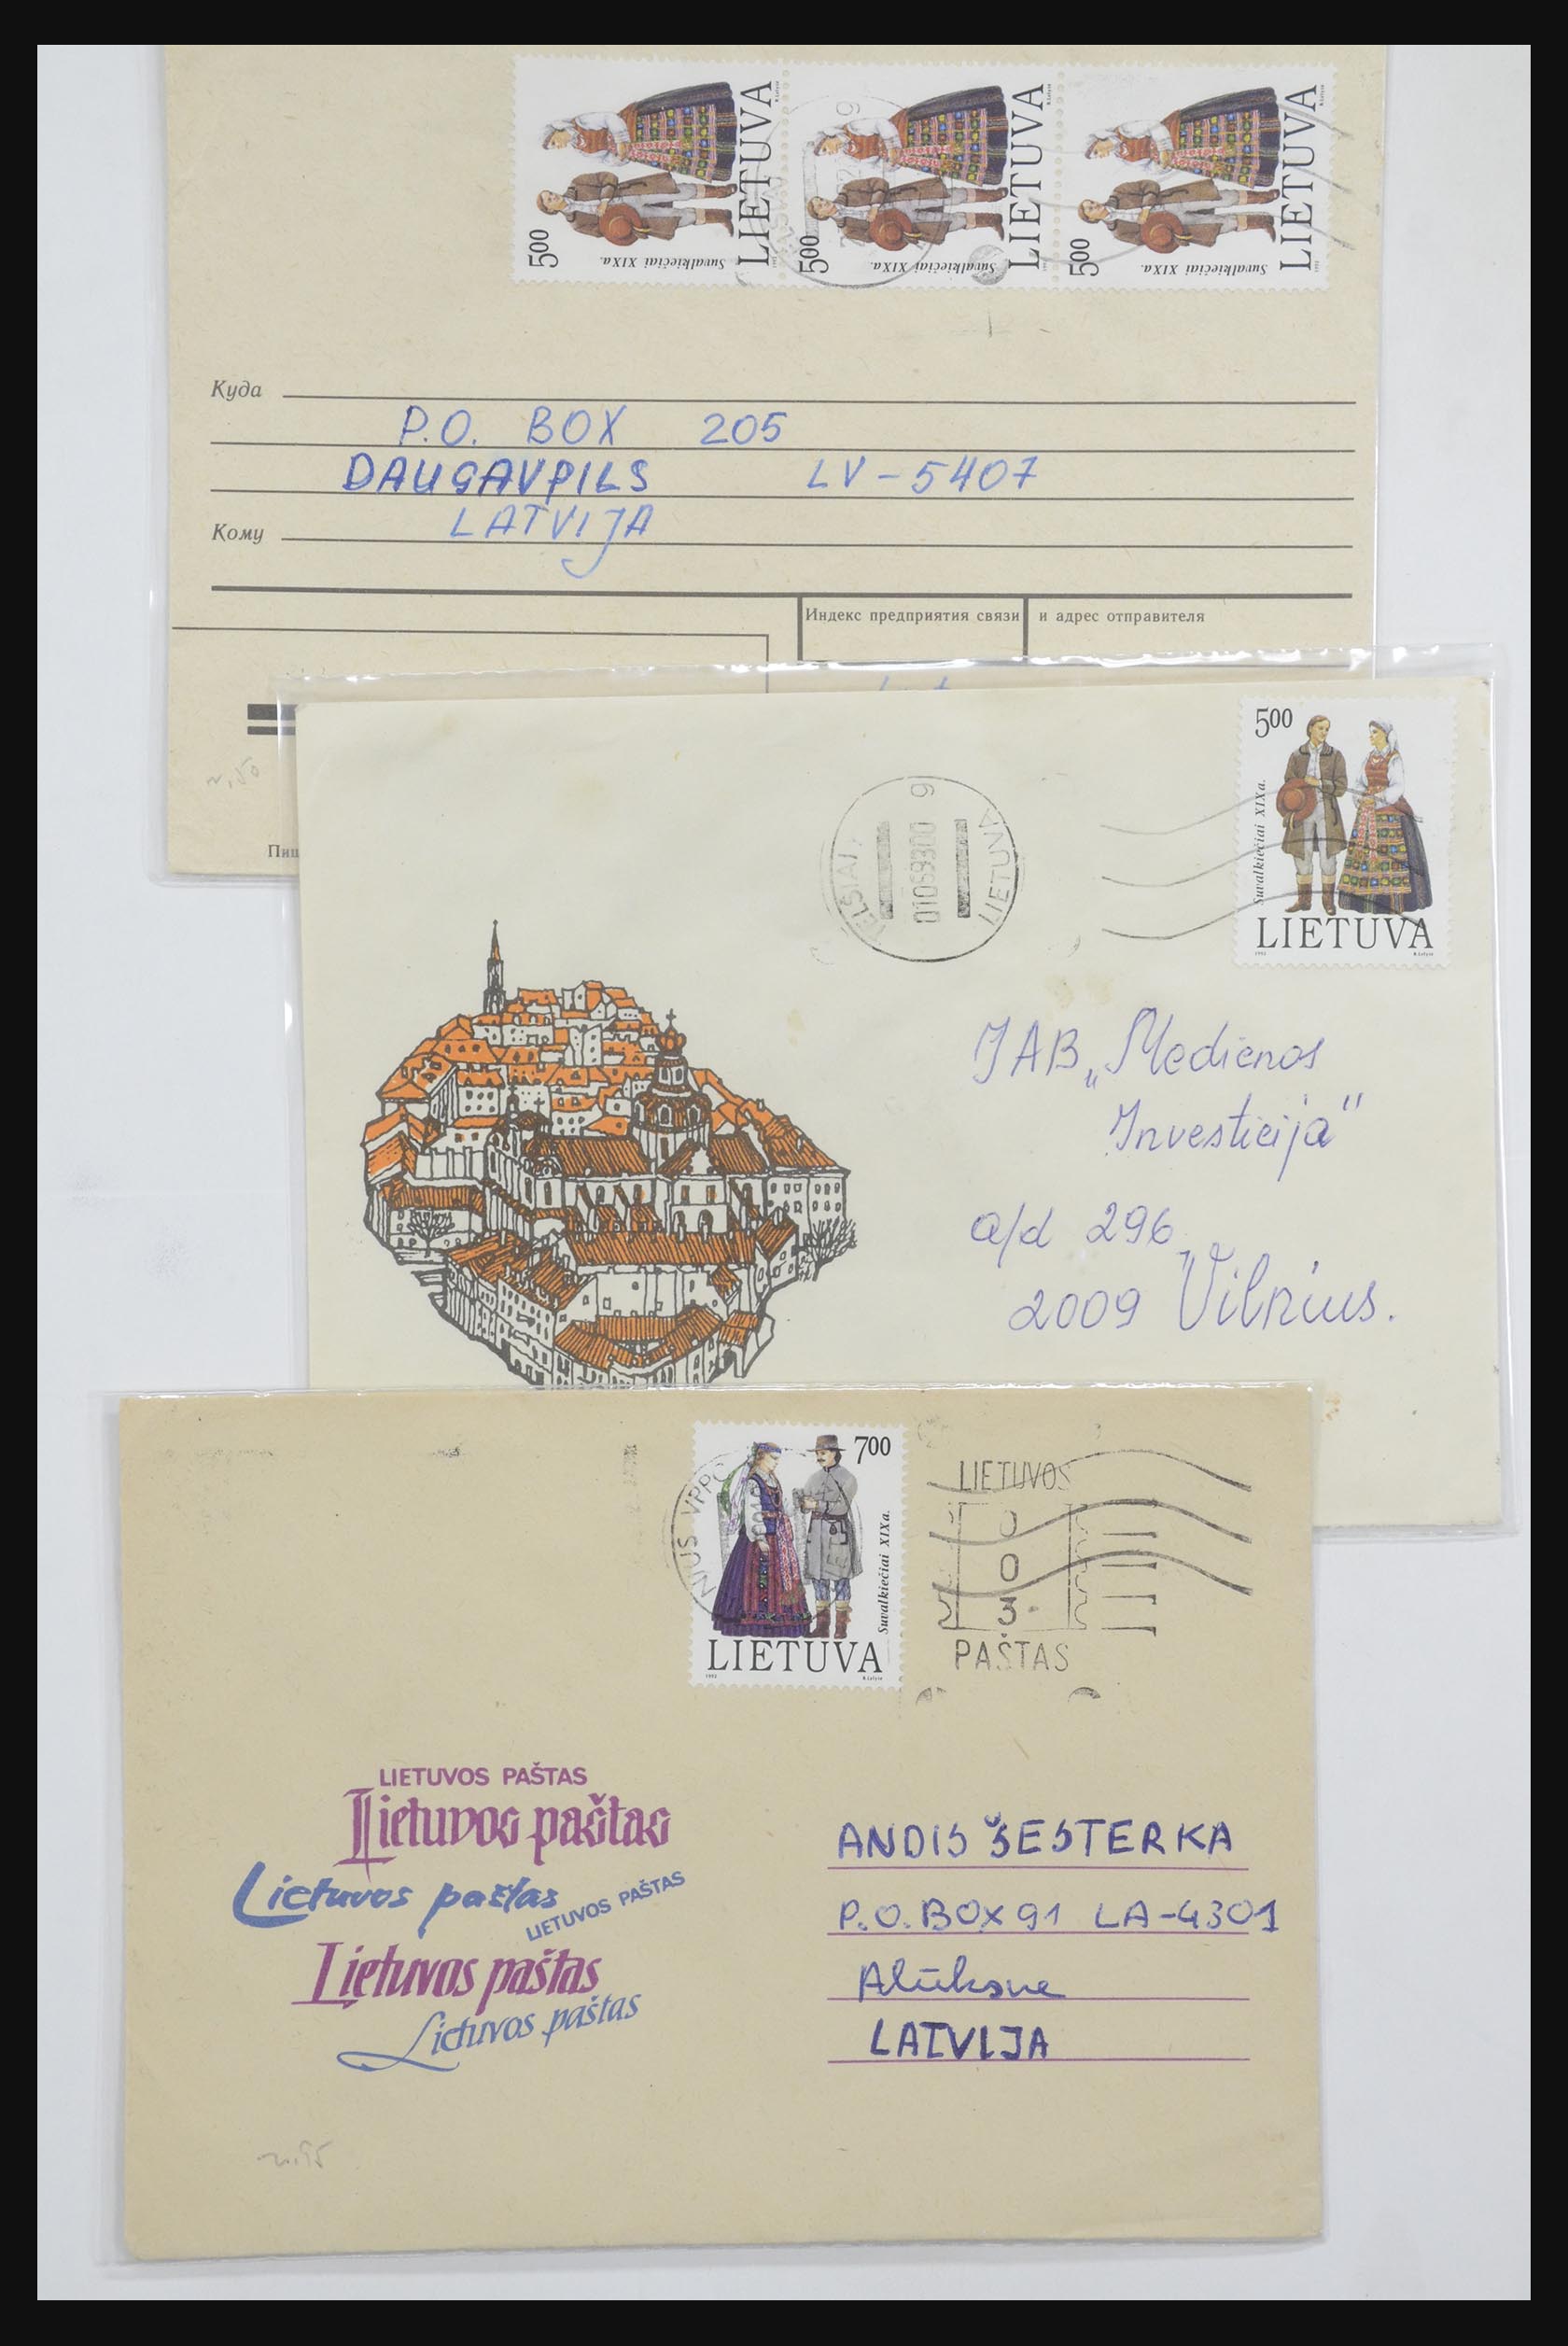 500
Suvalkiečiai XIXa.
LIETUVA
500
Suvalkiečiai XIXa.
LIETUVA
500
Suvalkiečiai XIXa.
LIETUVA
Куда
P.O. BOX 205
DAUGAVPILS LV-5407
LATVIJA
Кому
Индекс предприятия связи и адрес отправителя
500
Suvalkiečiai XIXa.
LIETUVA
LIETUVA
JAB „Medienos
Investicija"
a/d 296
2009 Vilnius.
700
Suvalkiečiai XIXa.
LIETUVA
NIUS VPPC
LIETUVOS
0
0
3
PAŠTAS
LIETUVOS PAŠTAS
Lietuvos paštas
Lietuvos paštas
LIETUVOS PAŠTAS
Lietuvos paštas
Lietuvos paštas
ANDIS ŠESTERKA
P.O.BOX 91 LA-4301
Alūksne
LATVIJA